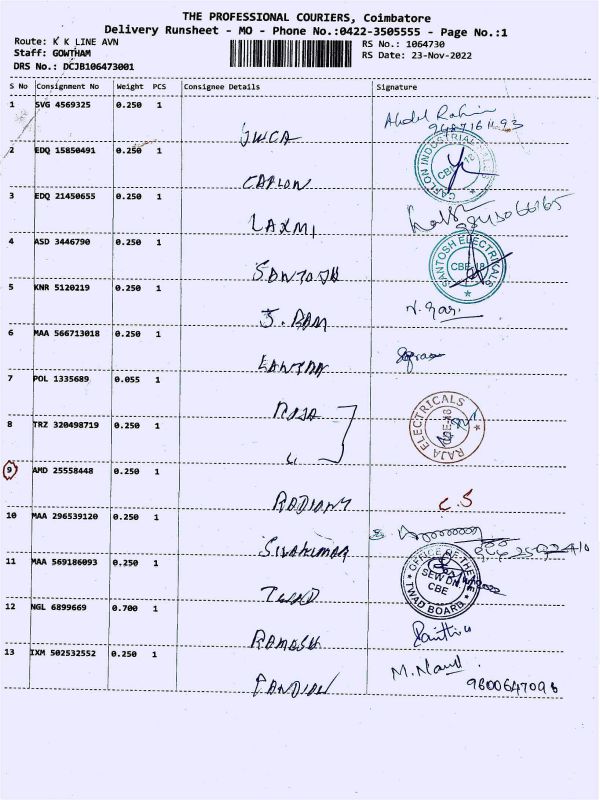 THE PROFESSIONAL COURIERS, Coimbatore
Delivery Runsheet - MO - Phone No.:0422-3505555 - Page No.:1
Route: K K LINE AVN
RS No.: 1064730
Staff: GOWTHAM
RS Date: 23-Nov-2022
DRS No.: DCJB106473001
S No Consignment No Weight PCS Consignee Details Signature
1 SVG 4569325 0.250 1
Abdul Rahim
JWCA
2 EDQ 15850491 0.250 1
CAPLON
3 EDQ 21450655 0.250 1
LAXMI
4 ASD 3446790 0.250 1
SANTOSH ELECTRICALS
CBE-18
SANTOSH
5 KNR 5120219 0.250 1
J. RAM
6 MAA 566713018 0.250 1
7 POL 1335689 0.055 1
RAJA
RAJA ELECTRICALS
8 TRZ 320498719 0.250 1
9 AMD 25558448 0.250 1
RADIANT
C.S
10 MAA 296539120 0.250 1
SIVAKUMAR
11 MAA 569186093 0.250 1
OFFICE OF THE
CBE
TWAD BOARD
TWAD
12 NGL 6899669 0.700 1
RAMESH
13 IXM 502532552 0.250 1
PANDIAN